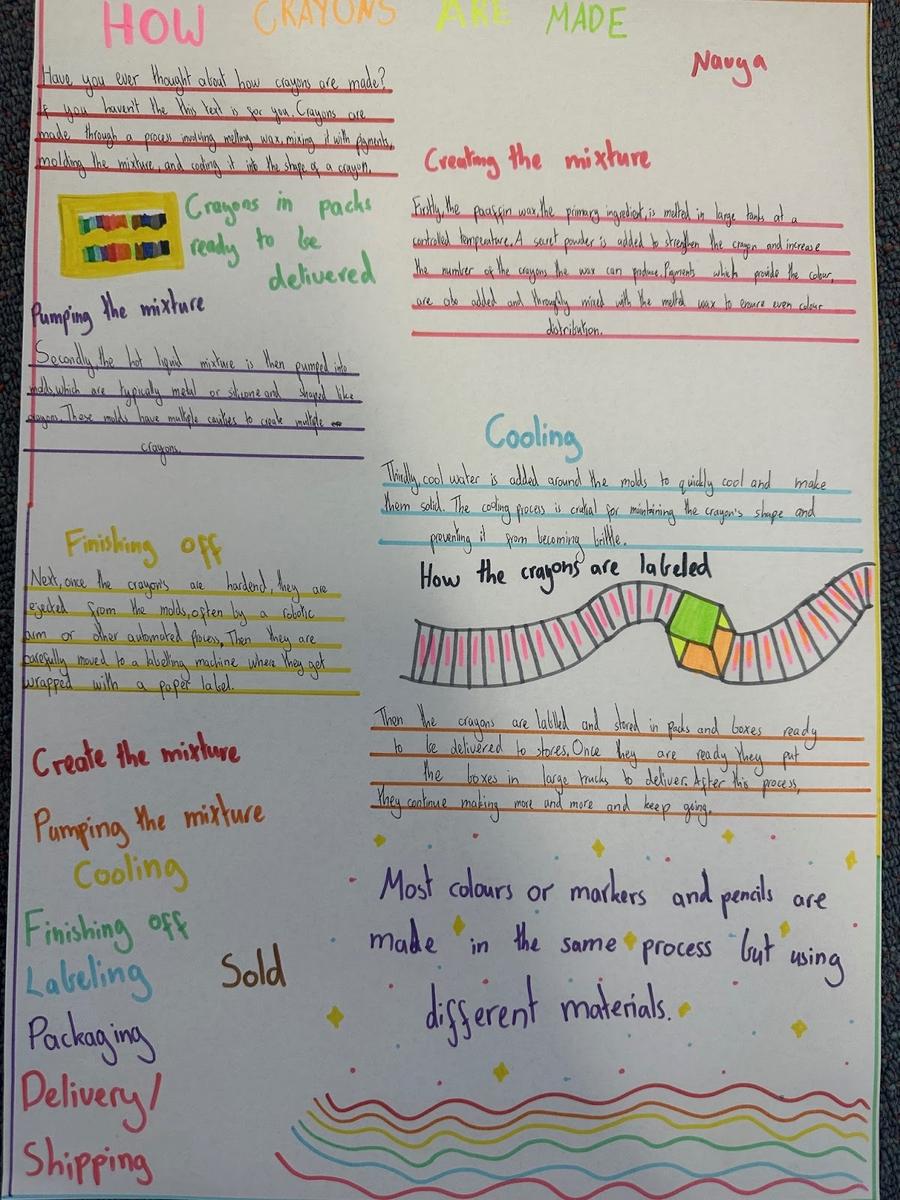 HOW CRAYONS ARE MADE
Navya
Have you ever thought about how crayons are made?
If you haven't the this text is for you. Crayons are
made through a process involving melting wax, mixing it with pigments,
molding the mixture, and cooling it into the shape of a crayon.
Crayons in packs
ready to be
delivered
Creating the mixture
Firstly, the paraffin wax, the primary ingredient, is melted in large tanks at a
controlled temperature. A secret powder is added to strengthen the crayon and increase
the number of the crayons the wax can produce. Pigments which provide the colour,
are also added and throughly mixed with the melted wax to ensure even colour
distribution.
Pumping the mixture
Secondly, the hot liquid mixture is then pumped into
molds, which are typically metal or silicone and shaped like
crayon. These molds have multiple cavities to create multiple
crayons.
Cooling
Thirdly, cool water is added around the molds to quickly cool and make
them solid. The cooling process is crutial for maintaining the crayon's shape and
preventing it from becoming brittle.
Finishing off
Next, once the crayon's are hardend, they are
ejected from the molds, often by a robotic
arm or other automated process, Then they are
carefully moved to a labelling machine where they get
wrapped with a paper label.
How the crayons are labeled
Then the crayons are labelled and stored in packs and boxes ready
to be delivered to stores. Once they are ready they put
the boxes in large trucks to deliver. After this process,
they continue making more and more and keep going.
Create the mixture
Pumping the mixture
Cooling
Finishing off
Labeling
Packaging
Delivery/
Shipping
Sold
Most colours or markers and pencils are
made in the same process but using
different materials.